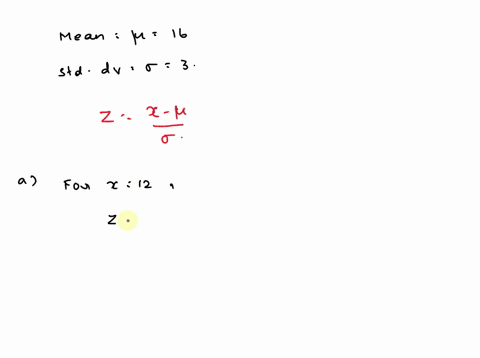 Mean : μ = 16
std. dv = σ = 3.
z = x - μ / σ.
a) For x = 12 ,
z